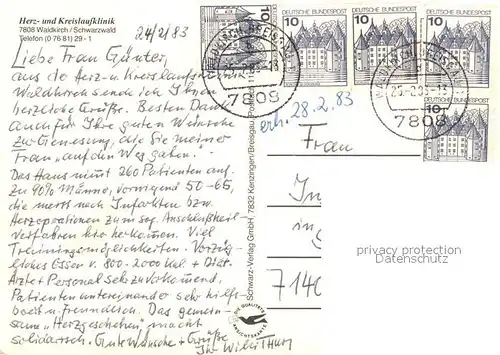 Herz- und Kreislaufklinik
7808 Waldkirch / Schwarzwald
Telefon (0 76 81) 29 - 1
24/2/83
Liebe Frau Günter,
aus der Herz- u. Kreislaufklinik
Waldkirch sende ich Ihnen
herzliche Grüße. Besten Dank
auch für Ihre guten Wünsche
zur Genesung, die Sie meiner
Frau "auf den Weg gaben".
Das Haus nimmt 260 Patienten auf.
Zu 90% Männer, vorwiegend 50-65,
die meist nach Infarkten bzw.
Herzoperationen zum sog. Anschlußheil-
verfahren hierherkommen. Viel
Trainingsmöglichkeiten. Vorzüg-
liches Essen v. 800-2000 Kal + Diät.
Ärzte + Personal sehr zuvorkommend,
Patienten untereinander sehr hilfs-
bereit u. freundlich. Das gemein-
same "Herzgeschehen" macht
solidarisch. Gute Wünsche + Grüße
Ihr
Schwarz-Verlag GmbH, 7832 Kenzingen/Breisgau
DIE QUALITÄTS
ANSICHTSKARTE
10
10
10
10
10
DEUTSCHE BUNDESPOST
DEUTSCHE BUNDESPOST
DEUTSCHE BUNDESPOST
WALDKIRCH, BREISGAU
7808
7808
erh. 28.2.83
Frau
In
in
7140
privacy protection
Datenschutz